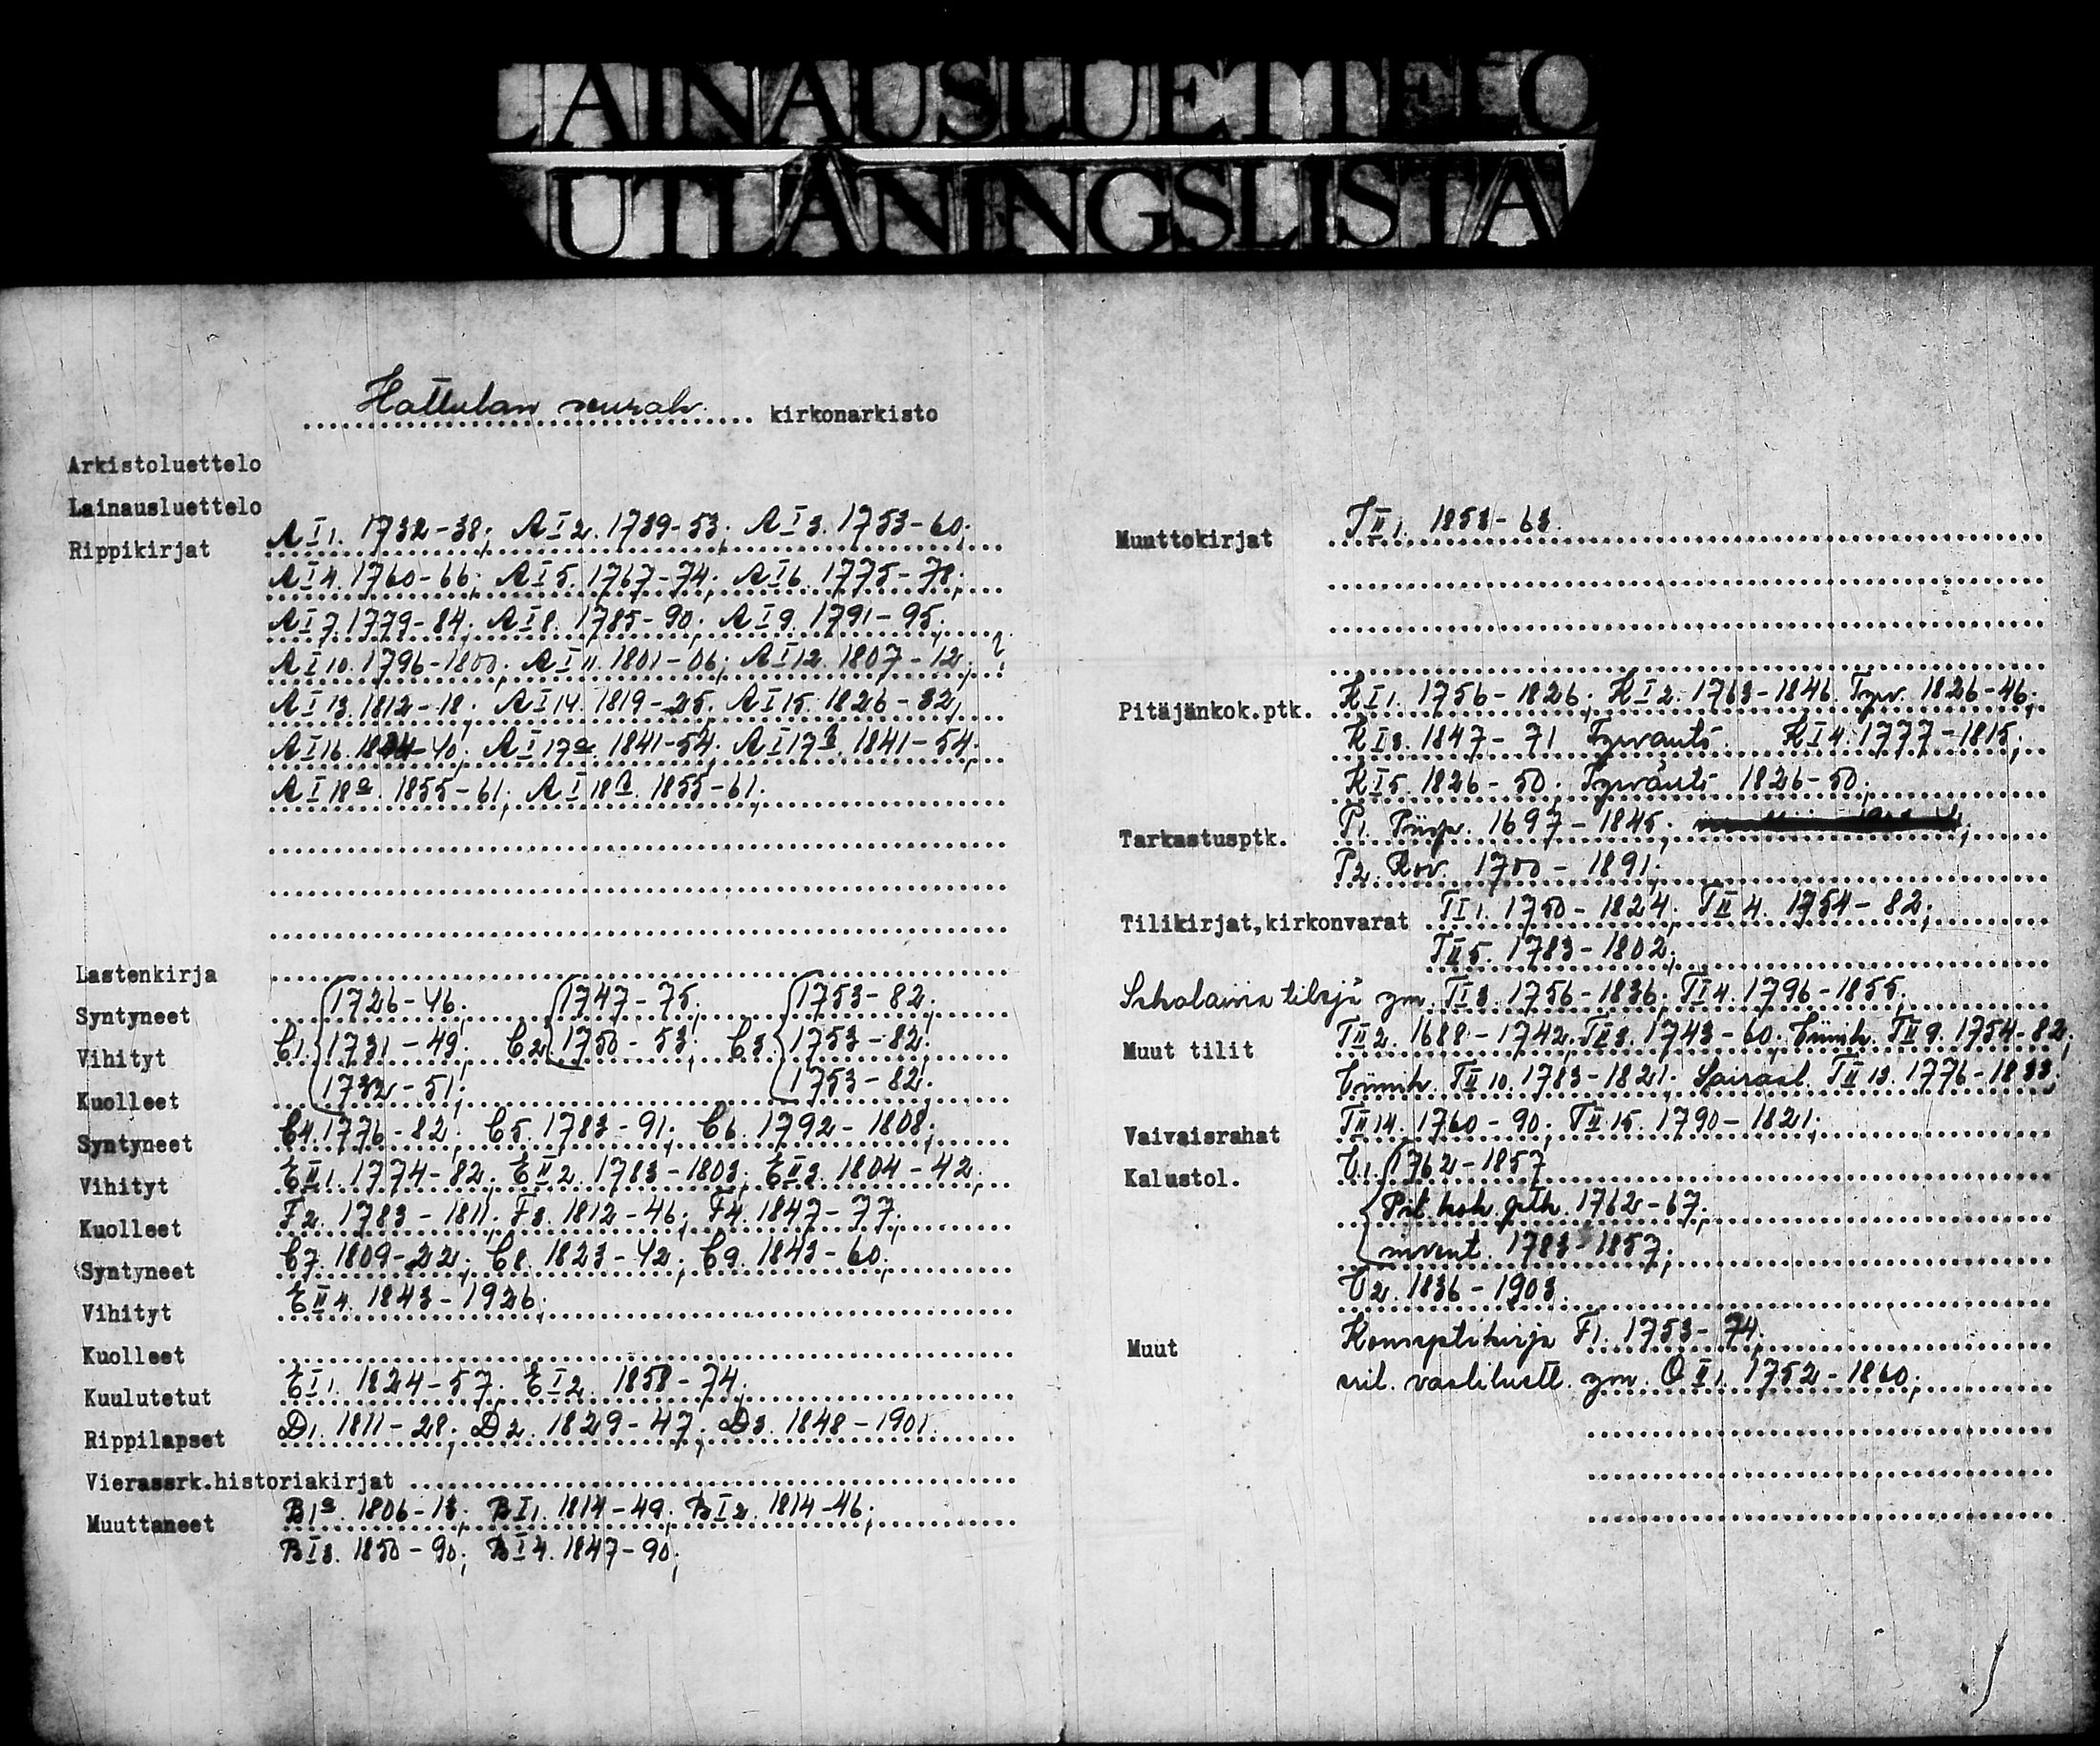 LAINAUSLUETTELO
UTLÅNINGSLISTA
Hattulan seurak. kirkonarkisto
Arkistoluettelo
Lainausluettelo
Rippikirjat A I 1. 1732-38; A I 2. 1739-53; A I 3. 1753-60;
A I 4. 1760-66; A I 5. 1767-74; A I 6. 1775-78;
A I 7. 1779-84; A I 8. 1785-90; A I 9. 1791-95;
A I 10. 1796-1800; A I 11. 1801-06; A I 12. 1807-12;
A I 13. 1812-18; A I 14. 1819-25; A I 15. 1826-32;
A I 16. 1834-40; A I 17a. 1841-54; A I 17b. 1841-54;
A I 18a. 1855-61; A I 18b. 1855-61;
Lastenkirja
Syntyneet 1726-46; 1747-75; 1753-82;
Vihityt C1. 1731-49; C2 1750-53; C3 1753-82;
Kuolleet 1732-51; 1753-82;
Syntyneet C4. 1776-82; C5. 1783-91; C6. 1792-1808;
Vihityt E II 1. 1774-82; E II 2. 1783-1803; E II 3. 1804-42;
Kuolleet F2. 1783-1811; F3. 1812-46; F4. 1847-77;
Syntyneet C7. 1809-22; C8. 1823-42; C9. 1843-60;
Vihityt E II 4. 1843-1926;
Kuolleet
Kuulutetut E I 1. 1824-57; E I 2. 1858-74;
Rippilapset D1. 1811-28; D2. 1829-47; D3. 1848-1901.
Vierassrk.historiakirjat
Muuttaneet B1a. 1806-13; B I 1. 1814-49; B I 2. 1814-46;
B I 3. 1850-90; B I 4. 1847-90;
Muuttokirjat J II 1. 1853-63.
Pitäjänkok.ptk. K I 1. 1756-1826; K I 2. 1763-1846. Tyrv. 1826-46;
K I 3. 1847-71 Tyrväntö K I 4. 1777-1815;
K I 5. 1826-50; Tyrväntö 1826-50;
Tarkastusptk. P1. Piisp. 1697-1845;
P2. Rov. 1700-1891;
Tilikirjat,kirkonvarat T I 1. 1750-1824; T II 4. 1754-82;
T II 5. 1783-1802;
tilejä ym. T I 3. 1756-1836; T I 4. 1796-1855;
Muut tilit T II 2. 1688-1742; T II 3. 1743-60; T II 9. 1754-82;
T II 10. 1783-1821; Sairaal. T II 13. 1776-1833;
Vaivaisrahat T II 14. 1760-90; T II 15. 1790-1821;
Kalustol. U1. 1762-1857
Pit. kok. ptk. 1762-67;
invent. 1783-1857;
U2. 1836-1903.
Muut Konseptikirja F1. 1753-74;
ym. O I 1. 1752-1860;